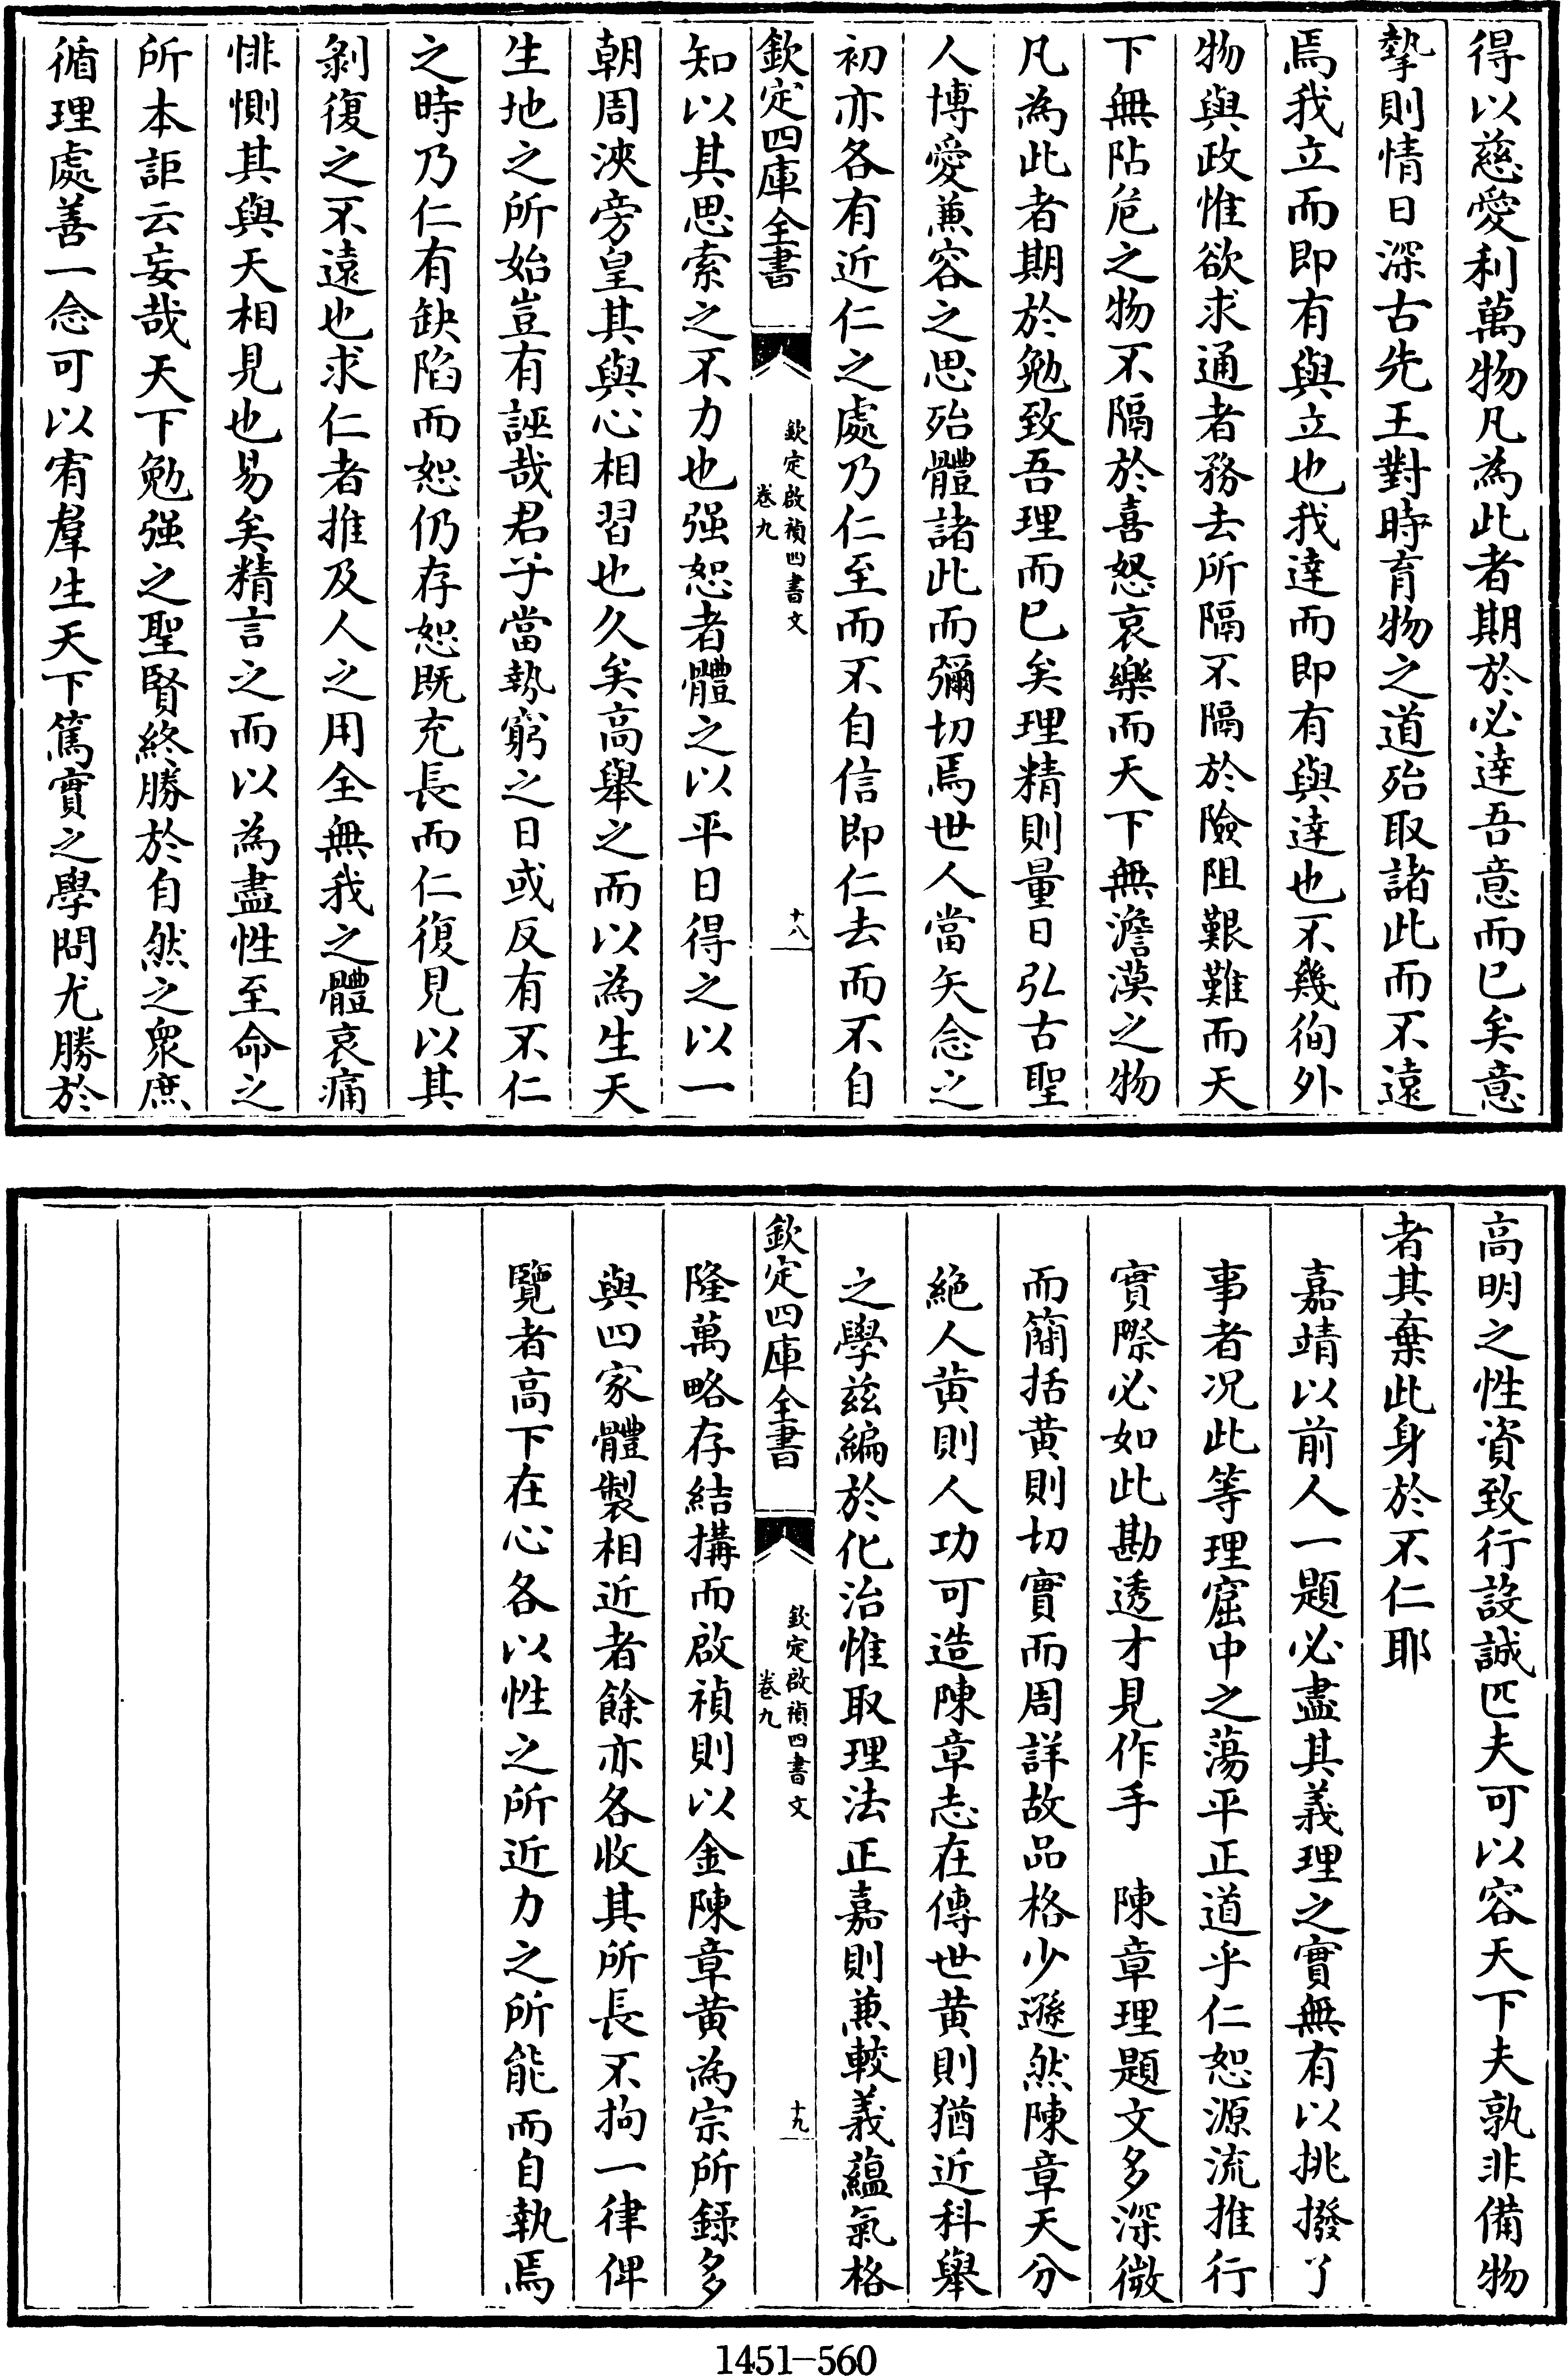 得以慈愛利萬物凡為此者期於必達吾意而已矣意
摯則情日深古先王對時育物之道殆取諸此而不遠
焉我立而即有與立也我達而即有與達也不幾徇外
物與政惟欲求通者務去所隔不隔於險阻艱難而天
下無阽危之物不隔於喜怒哀樂而天下無澹漠之物
凡為此者期於勉致吾理而已矣理精則量日弘古聖
人博愛兼容之思殆體諸此而彌切焉世人當矢念之
初亦各有近仁之處乃仁至而不自信即仁去而不自
欽定四庫全書
欽定啟禎四書文
卷九
十八
知以其思索之不力也强恕者體之以平日得之以一
朝周浹旁皇其與心相習也久矣高舉之而以為生天
生地之所始豈有誣哉君子當勢窮之日或反有不仁
之時乃仁有缺陷而恕仍存恕既充長而仁復見以其
剝復之不遠也求仁者推及人之用全無我之體哀痛
悱惻其與天相見也易矣精言之而以為盡性至命之
所本詎云妄哉天下勉强之聖賢終勝於自然之衆庶
循理處善一念可以宥羣生天下篤實之學問尤勝於
高明之性資致行設誠匹夫可以容天下夫孰非備物
者其棄此身於不仁耶
嘉靖以前人一題必盡其義理之實無有以挑撥了
事者况此等理窟中之蕩平正道乎仁恕源流推行
實際必如此勘透才見作手　陳章理題文多深微
而簡括黄則切實而周詳故品格少遜然陳章天分
絶人黄則人功可造陳章志在傳世黄則猶近科舉
之學兹編於化治惟取理法正嘉則兼較義蘊氣格
欽定四庫全書
欽定啟禎四書文
卷九
十九
隆萬略存結搆而啟禎則以金陳章黄為宗所録多
與四家體製相近者餘亦各收其所長不拘一律俾
覽者高下在心各以性之所近力之所能而自執焉
1451-560